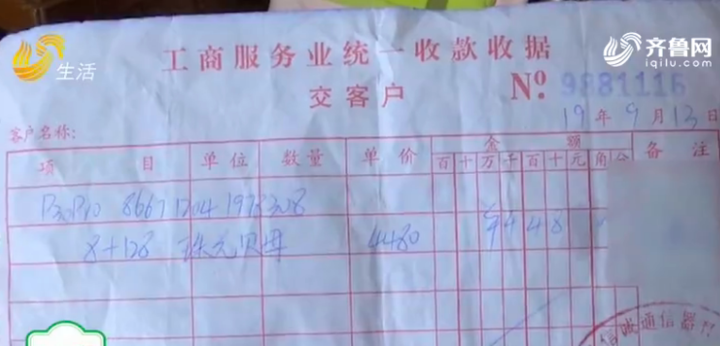 生活
齐鲁网
iqilu.com
工商服务业统一收款收据
交客户
№ 9881116
19年9月13日
客户名称:
项目 单位 数量 单价 金额 备注
百十万千百十元角分
P30P10 8667 1204 1973328
8+128 珠光贝母 4480 4480
诚通信器